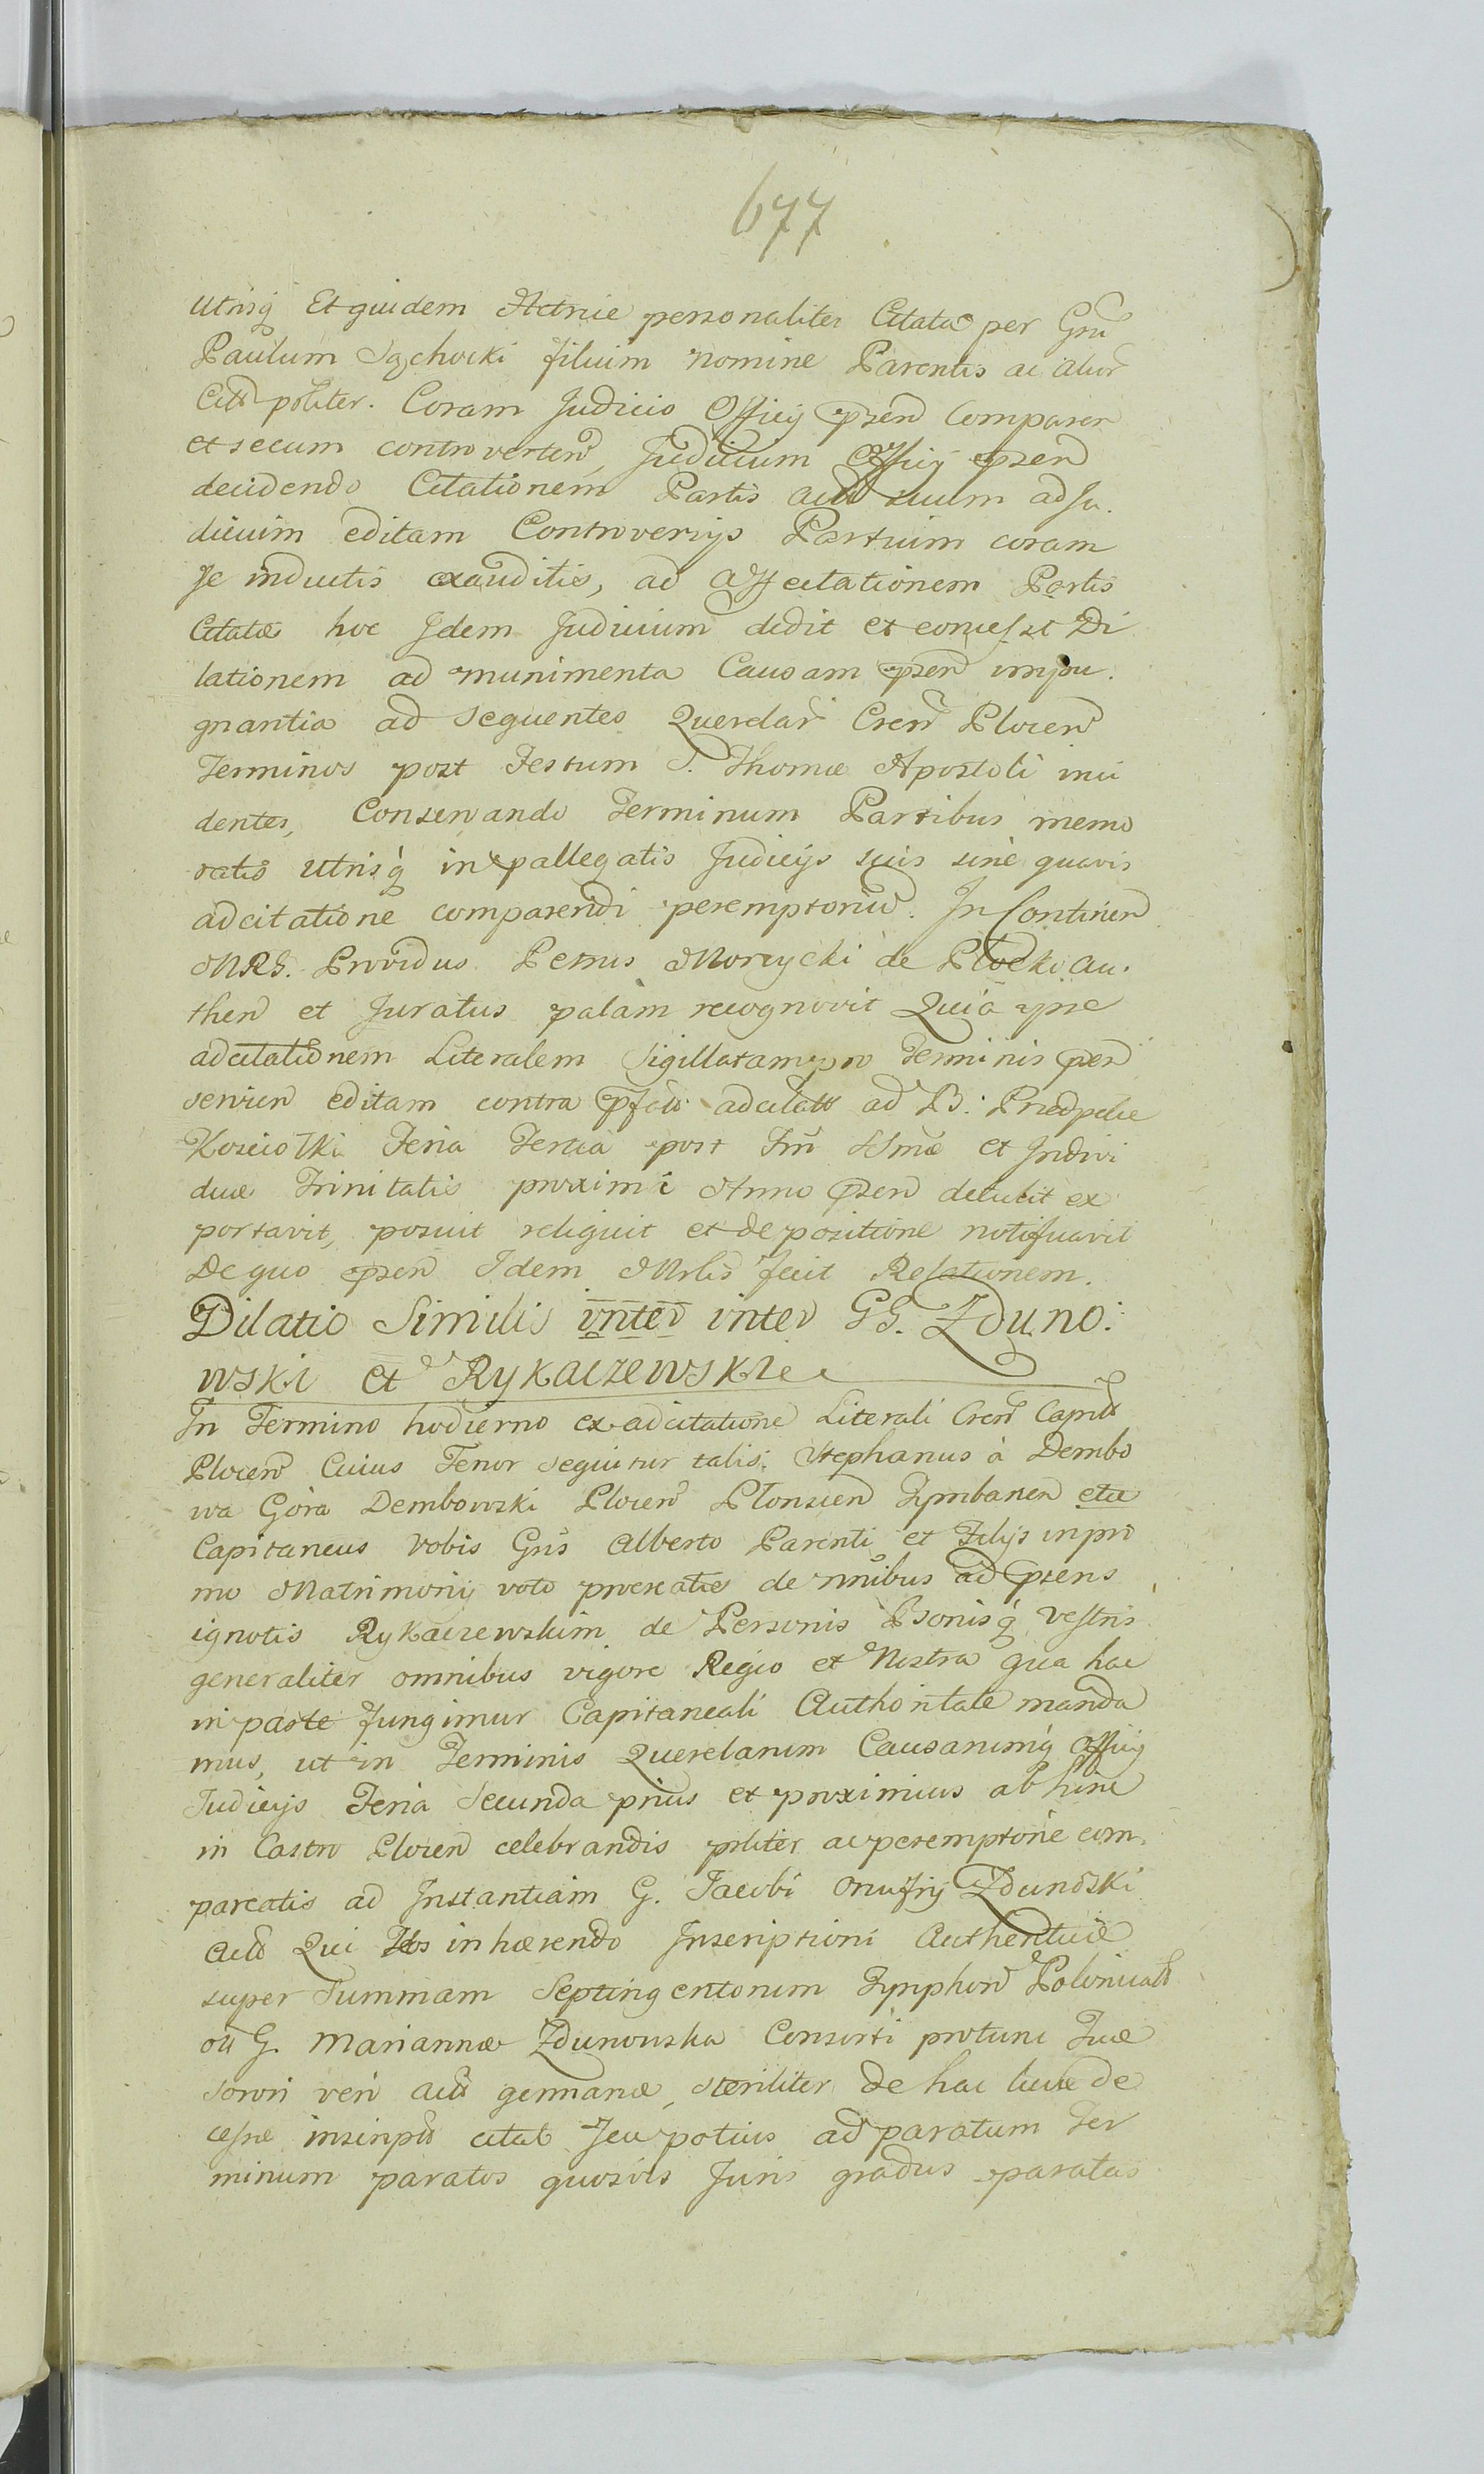 677
utrisq́ Et quidem Actrice personaliter Citatâ per Gnũ
Paulum Sąchocki filium nomine Parentis ac alior̃
Citt pŕliter. Coram Judicio Officij p̃sen Comparen
et secum controverten, Judicium Officij p̃sen
decidendo Citationem Partis act suum ad Ju.
dicium editam Controversijs Partium coram
se inductis exauditis, ad affectationem Partis
Citatæ hoc Idem Judicium dedit et concessit Di
lationem ad munimenta Causam p̃sen impu.
gnantia ad sequentes Querelar̃ Cren Plocen
Terminos post Festum S. Thomæ Apostoli inci
dentes, Conservando Terminum Partibus memo
ratis utrisq́ in p̃allegatis Judicijs suis sine quavis
adcitatione comparendi peremptoriũ. In Continen
MRS. Providus Petrus Morzycki de Plocko au.
then et Juratus palàm recognovit Quià ipse
adcitationem Literalem Sigillatam pro Terminis p̃sen
servien editam contra p̃fatt adcitatt ad B:
Kosciołki Feria Tertia post Fm̃ SSmæ et Indivi
duæ Trinitatis proximè Anno p̃sen detulit ex
portavit, posuit reliquit et de positione notificavit
De quo p̃sen Idem Mrlis fecit Relationem.
Dilatio Similis inter inter GG. Zduno:
wski et Rykaczewskie
In Termino hodierno ex adcitatione Literali Cren Capitt
Plocen Cuius Tenor sequitur talis. Stephanus à Dembo
wa Góra Dembowski Plocen Płonscen Zymbanen etce
Capitaneus Vobis Gñs Alberto Parenti et Filijs in pri
mo Matrimonij voto procreatis de nñibus ad p̃sens
ignotis Rykaczewskim de Personis Bonisq́ Vestris
generaliter omnibus vigore Regio et Nostra qua hac
in parte fungimur Capitaneali Authoritate manda
mus, ut in Terminis Querelarum Causarumq́ Officij
Judicijs Feria Secunda prius et proximius ab hinc
in Castro Plocen celebrandis pŕliter ac peremptoriè com.
pareatis ad Instantiam G. Jacobi Onufrij Zdunoski
Act Qui Vos inhærendo Inscriptioni Authenticæ
super Summam Septingentorum Zynphon Polonicalt
ott G. Mariannæ Zdunowska Consorti protunc Tuæ
sorori verò act germanæ, steriliter de hac luce de
cessæ inscript citat seu potius ad paratum Ter
minum paratos quosvis Juris gradus paratas